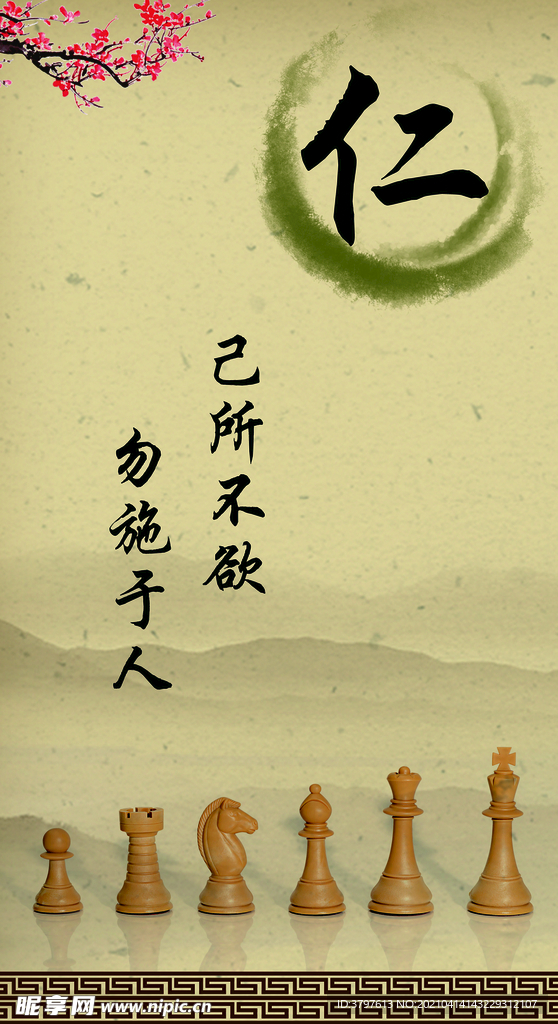 仁
己所不欲
勿施于人
昵享网 www.nipic.cn
ID:3797613 NO:20210414143229312107